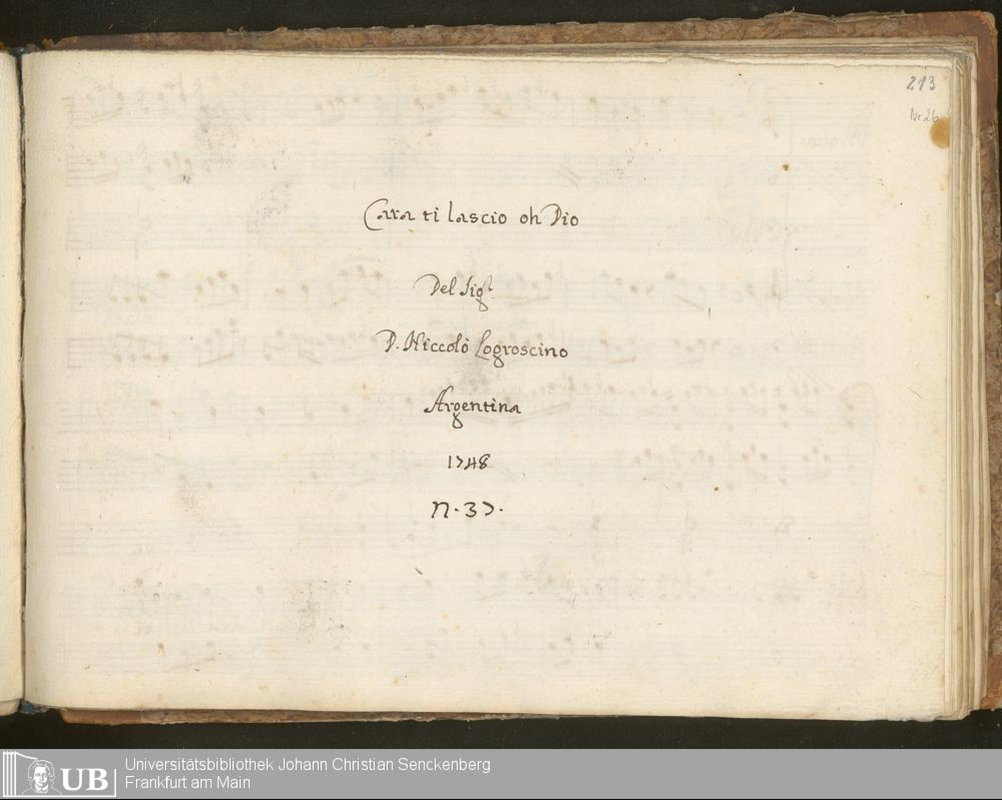 213
Nr 26
Cara ti lascio oh Dio
Del Sigr
D. Niccolò Logroscino
Argentina
1748
N. 37.
UB
Universitätsbibliothek Johann Christian Senckenberg
Frankfurt am Main